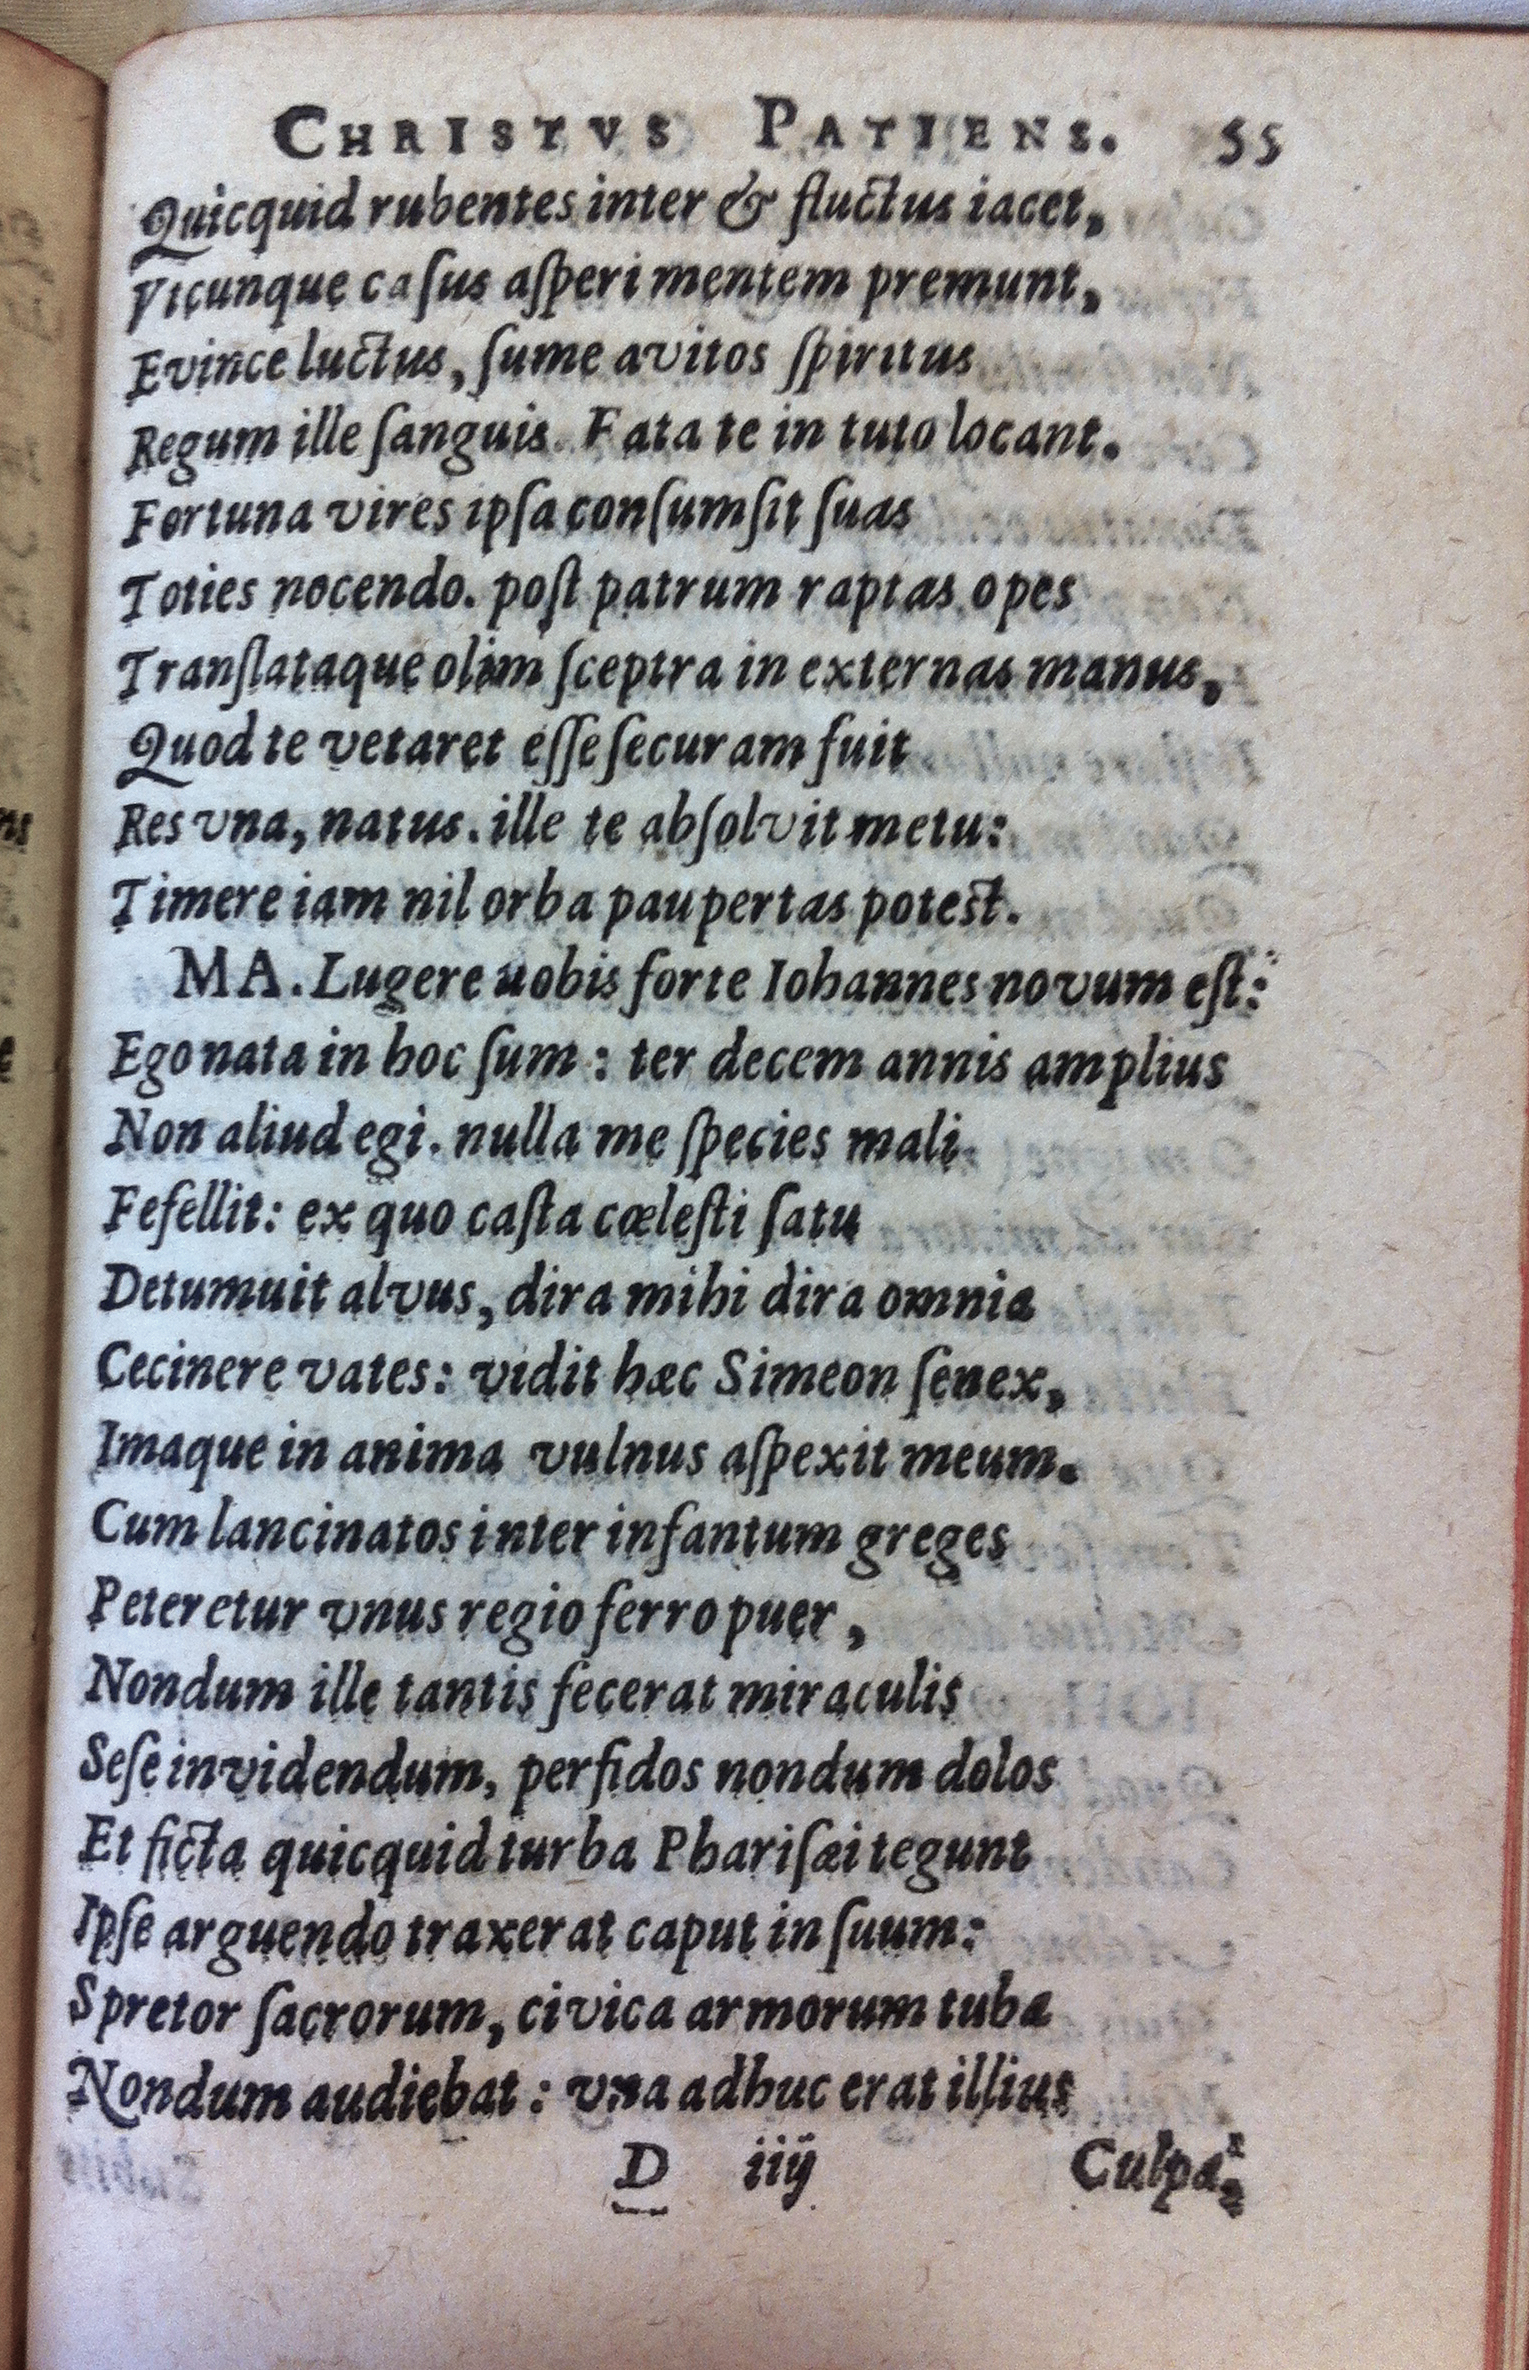 CHRISTVS PATIENS. 55
Quicquid rubentes inter & fluctus iacet,
Vtcunque casus asperi mentem premunt,
Evince luctus, sume avitos spiritus
Regum ille sanguis. Fata te in tuto locant.
Fortuna vires ipsa consumsit suas
Toties nocendo. post patrum raptas opes
Translataque olim sceptra in externas manus,
Quod te vetaret esse securam fuit
Res vna, natus. ille te absolvit metu:
Timere iam nil orba paupertas potest.
MA. Lugere uobis forte Iohannes novum est:
Ego nata in hoc sum: ter decem annis amplius
Non aliud egi. nulla me species mali
Fefellit: ex quo casta cœlesti satu
Detumuit alvus, dira mihi dira omnia
Cecinere vates: vidit hæc Simeon senex,
Imaque in anima vulnus aspexit meum.
Cum lancinatos inter infantum greges
Peteretur vnus regio ferro puer,
Nondum ille tantis fecerat miraculis
Sese invidendum, perfidos nondum dolos
Et ficta quicquid turba Pharisæi tegunt
Ipse arguendo traxerat caput in suum:
Spretor sacrorum, civica armorum tuba
Nondum audiebat: vna adhuc erat illius
D iiij Culpa